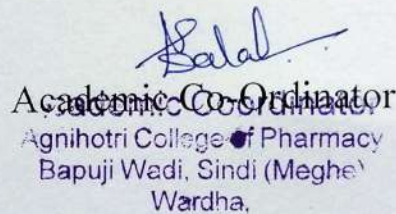 Academic Co-Ordinator
Academic Coordinator
Agnihotri College of Pharmacy
Bapuji Wadi, Sindi (Meghe)
Wardha,